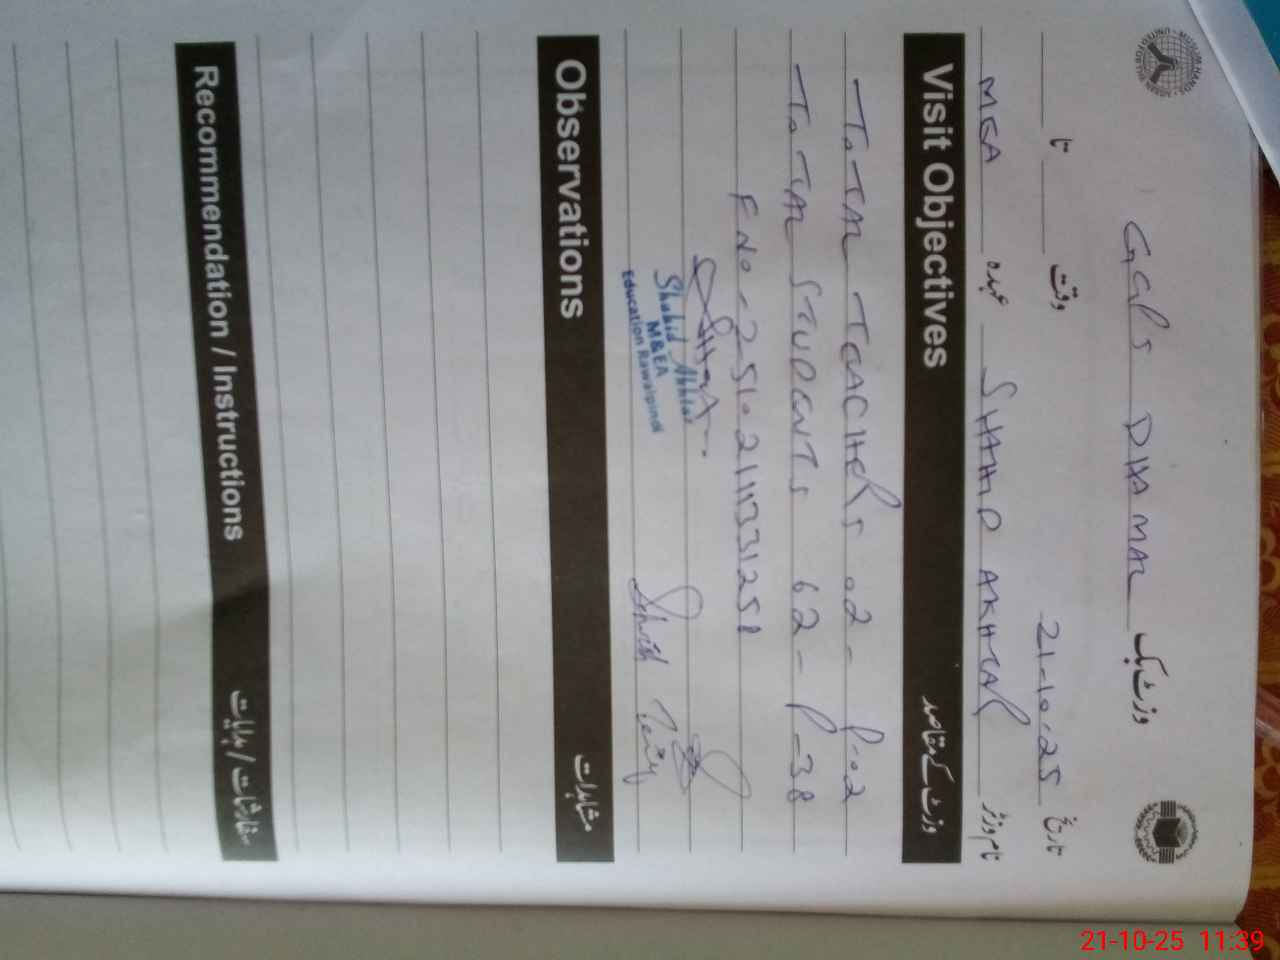 GGPS DHAMAL وزٹ بک
تاریخ 21-10-25 وقت تا
نام وزٹر SHAHID AKHTAR عہدہ MEA
Visit Objectives وزٹ کے مقاصد
TOTAL TEACHERS 02 - P-02
TOTAL STUDENTS 62 - P-38
F NO - 2510211133125
Shahid Akhtar
M&EA
Education Rawalpindi
Observations مشاہدات
Recommendation / Instructions سفارشات / ہدایات
21-10-25 11:39